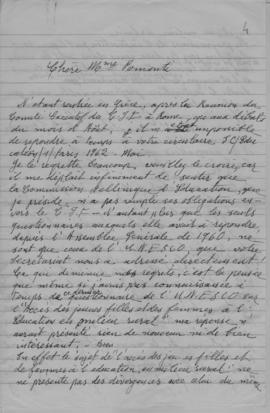 4
Chère Mme Pomonti
N'étant rentrée en Grèce, après la Réunion du
Comité Exécutif de C.I.F. à Rome, que aux débuts
du mois d'Août, il m'était impossible
de répondre à temps à votre circulaire
Paris 1962 Mai.
Je le regrette beaucoup, veuillez le croire, car
il me déplait infiniment de sentir que
la Commission Hellénique d'Education, que
je preside, n'a pas remplie ses obligations en-
vers le C.I.F. - d'autant plus que les seuls
questionnaires auxquels elle avait à repondre,
depuis l'Assemblée Générale de 1960, ne
sont que ceux de l'U.N.E.S.C.O, que votre
Secretariat nous a adressé directement!
Ce que diminue regrets, c'est la pensée
que même si j'avais pu
temps questionnaire de l'U.N.E.S.C.O. sur
l'Accès des jeunes filles et des femmes à l'
Education en milieu rural" ma réponse n'
aurait présenté rien de nouveau ni de bien
interessant,
En effet le sujet de l'accès des jeunes filles et
de femmes à l'éducation, en milieu rural! ne
ne présente pas des divergences avec celui du même